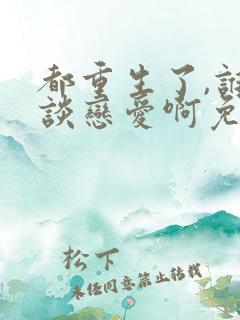 都重生了,誰
談戀愛啊免
松下
未经同意禁止转载